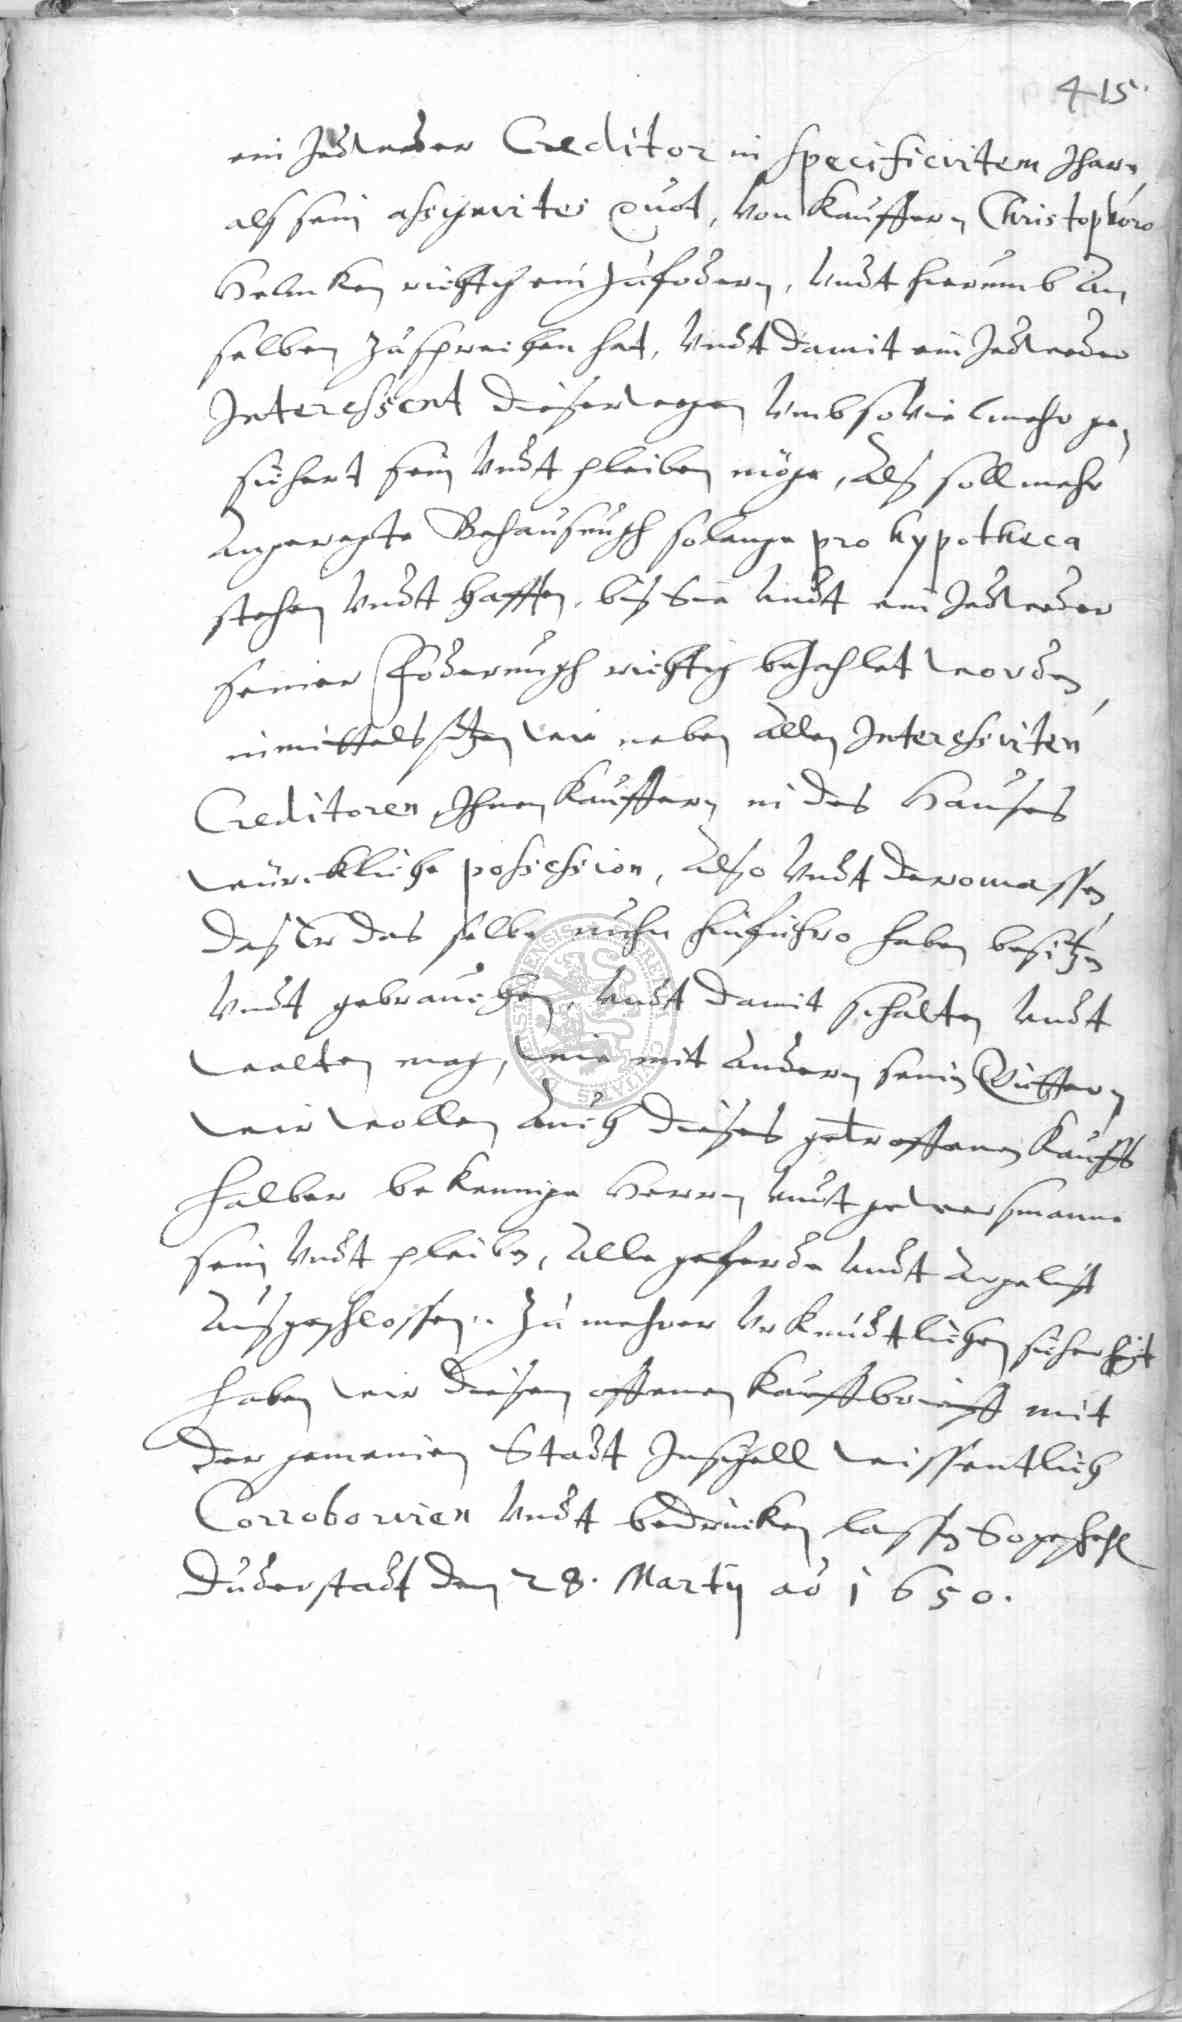 415.
ein Jedtweder Creditor in specificirtem Jharn,
alß sein assignirtes Quot, von Kauffern Christophoro
Helmken richtig ein zufodern, undt hierumb An
selben zusprechen hat, Undt damit ein Jedtweder
Interessent dieserwegen Umb soviel mehr ge,
sichert sein Undt pleiben möge, Alß soll mehr
Angeregte Behausungh solange pro hypotheca
stehen Undt hafften, biß Sie undt ein Jedtweder
seiner Foderungh richtig bezahlet worden,
inmittelß setzen wir neben Allen Interessirten
Creditoren, Ihnen Kauffern in des Hauses
würckliche possession, Also Undt deromassen,
daß Er das selbe nuhn hinfuhro haben besitzen
Undt gebrauchen, undt damit schalten undt
walten mag, wie mit Andern seinen Güttern,
wir wollen Auch dieses getroffenen Kauffs
halber bekennige Herrn undt gewersmanne
sein Undt pleiben, Alle geferde undt Argelist
Außgeschlossen. Zu mehrer Urkundtlichen sicherheit
haben wir diesen offenen Kauffbrieff mit
der gemeinen Stadt Insigell wissentlich
Corroboriren Undt bedrücken lassen So geschehen
Duderstadt den 28. Martij ao 1650.